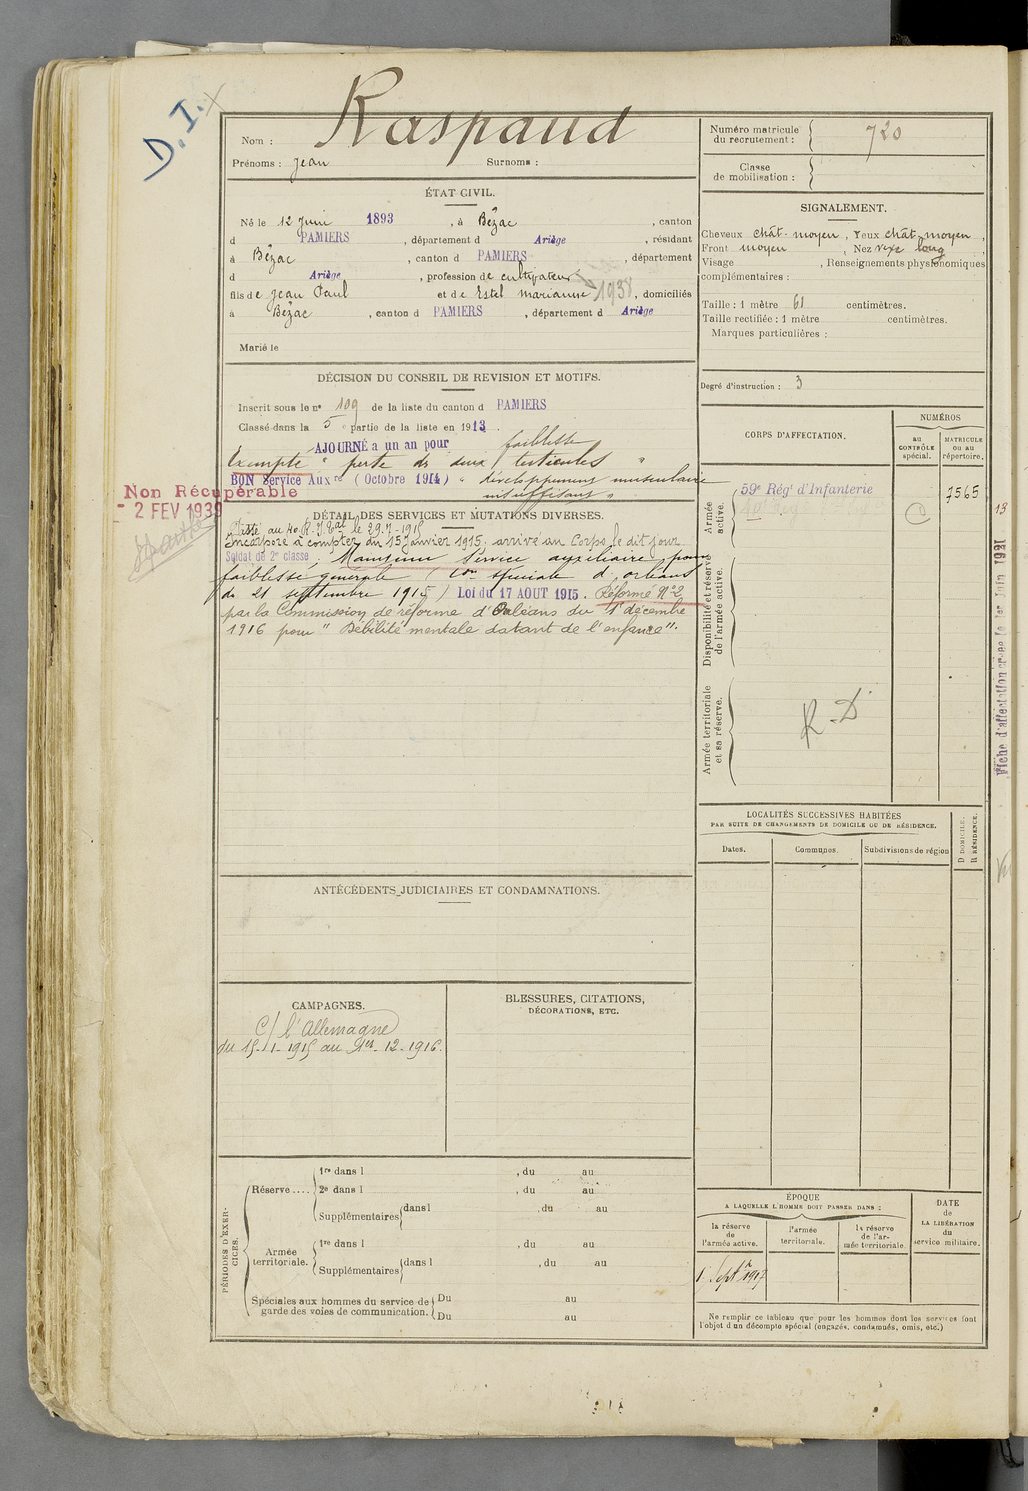 D.I.
Raspaud
Nom :
Prénoms : Jean Surnoms :
Numéro matricule du recrutement : 720
Classe de mobilisation :
ÉTAT CIVIL.
Né le 12 Juin 1893, à Bézac, canton
d PAMIERS, département d Ariège, résidant
à Bézac, canton d PAMIERS, département
d Ariège, profession de cultivateur
fils de Jean Paul et de Estel Marianne, domiciliés
1938
à Bézac, canton d PAMIERS, département d Ariège
Marié le
SIGNALEMENT.
Cheveux chât-moyen, Yeux chât-moyen,
Front moyen, Nez long
Visage , Renseignements physionomiques
complémentaires :
Taille : 1 mètre 61 centimètres.
Taille rectifiée : 1 mètre centimètres.
Marques particulières :
Degré d'instruction : 3
DÉCISION DU CONSEIL DE REVISION ET MOTIFS.
Inscrit sous le n° 109 de la liste du canton d PAMIERS
Classé dans la 5° partie de la liste en 1913.
AJOURNÉ a un an pour faiblesse
Exempté " perte de deux testicules "
BON Service Auxre (Octobre 1914) " développement musculaire
insuffisant "
Non Récupérable
- 2 FEV 1939
DÉTAIL DES SERVICES ET MUTATIONS DIVERSES.
au 40 R.I. le 29-7-1915
Incorporé à compter du 15 Janvier 1915. arrivé au Corps le dit jour
Soldat de 2e classe. Maintenu Service auxiliaire pour
faiblesse générale (Con spéciale d'Orléans
du 21 septembre 1915) Loi du 17 AOUT 1915. Réforme N°2
par la Commission de réforme d'Orléans du 1er décembre
1916 pour " Débilité mentale datant de l'enfance".
CORPS D'AFFECTATION.
NUMÉROS
au CONTRÔLE spécial.
MATRICULE ou au répertoire.
Armée active.
59e Régt d'Infanterie 7565
C
Disponibilité et réserve de l'armée active.
Armée territoriale et sa réserve.
R.D
13
Fiche d'affectation créée le 1er Juin 1921
LOCALITÉS SUCCESSIVES HABITÉES
PAR SUITE DE CHANGEMENTS DE DOMICILE OU DE RÉSIDENCE.
D DOMICILE.
R RÉSIDENCE.
Dates. Communes. Subdivisions de région
ANTÉCÉDENTS JUDICIAIRES ET CONDAMNATIONS.
CAMPAGNES.
C/ l'Allemagne
du 15-1-1915 au 1er-12-1916.
BLESSURES, CITATIONS,
DÉCORATIONS, ETC.
PÉRIODES D'EXERCICES.
Réserve....
1re dans l , du au
2e dans l , du au
Supplémentaires dans l , du au
Armée territoriale.
1re dans l , du au
Supplémentaires dans l , du au
Spéciales aux hommes du service de garde des voies de communication.
Du au
Du au
ÉPOQUE
A LAQUELLE L'HOMME DOIT PASSER DANS :
la réserve de l'armée active.
l'armée territoriale.
la réserve de l'armée territoriale.
DATE de LA LIBÉRATION du service militaire.
1r Septbre 1917
Ne remplir ce tableau que pour les hommes dont les services font
l'objet d'un décompte spécial (engagés, condamnés, omis, etc.)